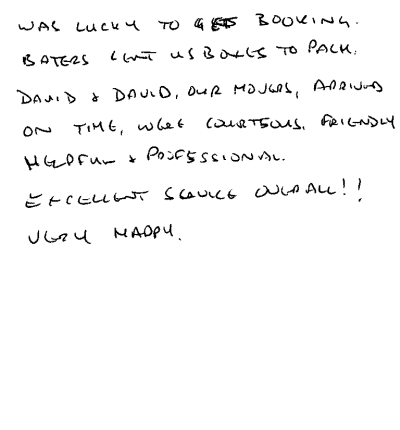 WAS LUCKY TO GET BOOKING.
BATERS SENT US BOXES TO PACK.
DAVID & DAVID, OUR MOVERS, ARRIVED
ON TIME, WERE COURTEOUS, FRIENDLY
HELPFUL & PROFESSIONAL.
EXCELLENT SERVICE OVERALL!!
VERY HAPPY.